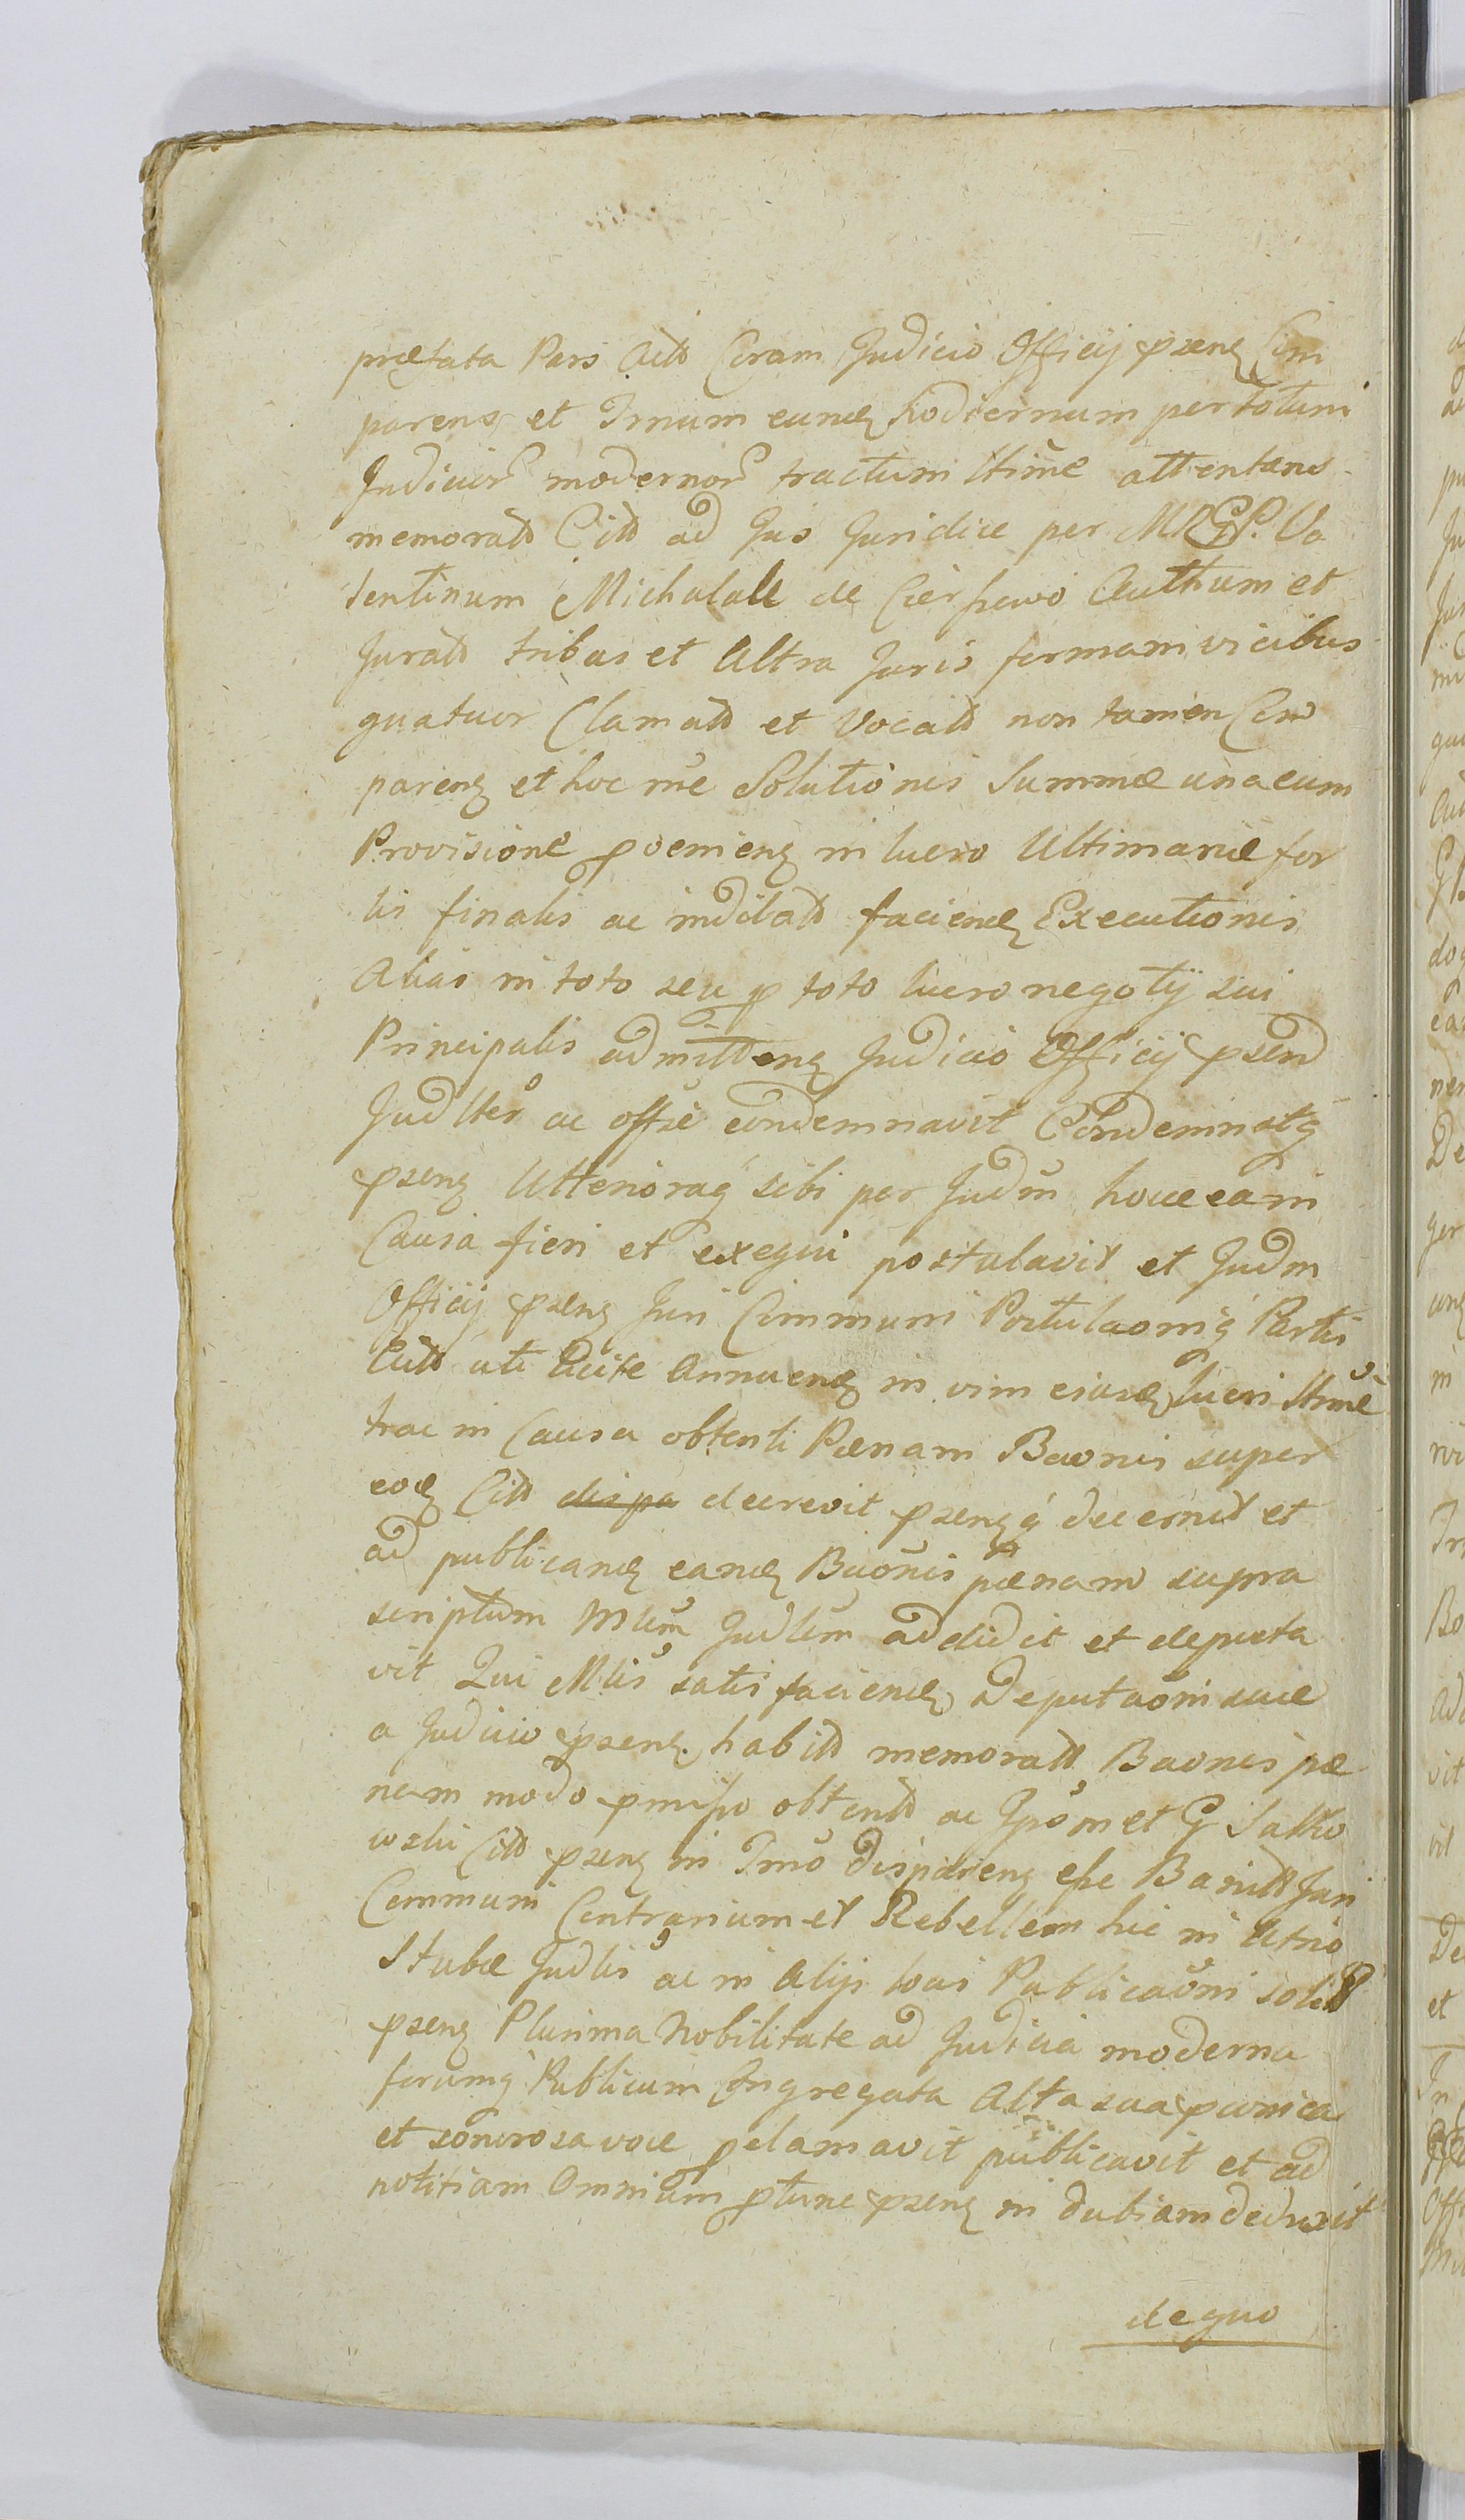 præfata Pars Actt Coram Judicio Officij pzenȝ Com
parens et Trnum eundȝ hodiernum per totum
Judicior modernor tractum ltime attentans
memoratt Citt ad Jus Juridice per M. Va
lentinum Michalak de Cierpiewo Authum et
Juratt tribus et Ultra Juris formam vicibus
quatuor Clamatt et Vocatt non tamen Com
parenȝ et hoc rne Solutionis Summæ una cum
Provisione pvenienȝ in lucro Ultimariæ for
tis finalis ac indilatt faciendȝ Executionis
Alias in toto seu p toto lucro negotij sui
Principalis admittenȝ Judicio Officij pzend
Judlter ac offse condemnavit Condemnatq
pzenȝ Ulterioraq sibi per Judm hocce ea in
Causa fieri et exequi postulavit et Judm
Officij pzenȝ Juri Communi Postulaoniq Partis
Actt uti Acite Annuendȝ in vim eiusdȝ lucri ltime
hac in Causa obtenti Pænam Baonis super
eodȝ Citt dispa decrevit pzenȝq decernit et
ad publicandȝ eandȝ Baonis pænam supra
scriptum Mlem Judlem addidit et deputa
vit Qui Mlis satis faciendȝ Deputaoni suæ
a Judicio pzenȝ habitt memoratt Baonis pæ
nam modo pmisso obtentt ac Ipsummet G
wski Citt pzenȝ in Trno disparenȝ esse Banitt Juri
Communi Contrarium et Rebellem hic in Atrio
Stubæ Judlis ac in Alijs locis Publicaoni solitt
pzenȝ Plurima Nobilitate ad Judicia moderna
forumq Publicum Congregata Alta sua
et sonorosa voce pclamavit publicavit et ad
notitiam Omnium ptunc pzenȝ in dubiam deduxit
de quo